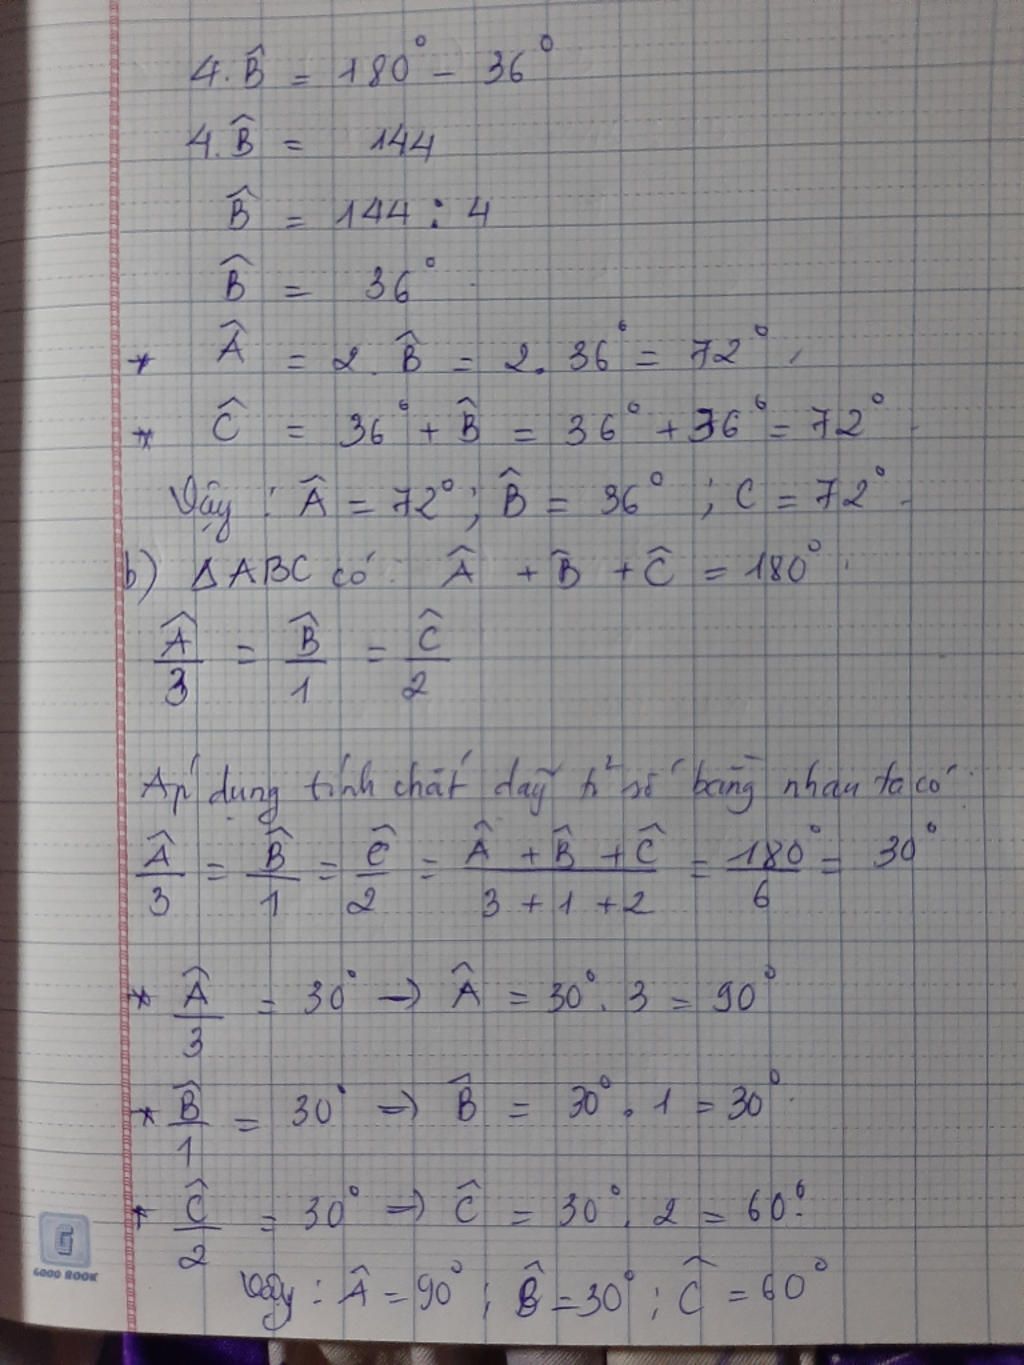 4.B̂ = 180° - 36°
4.B̂ = 144
B̂ = 144 : 4
B̂ = 36°
* Â = 2. B̂ = 2. 36° = 72°
* Ĉ = 36° + B̂ = 36° + 36° = 72°
Vậy : Â = 72° ; B̂ = 36° ; C = 72°
b) ΔABC có: Â + B̂ + Ĉ = 180°
Â/3 = B̂/1 = Ĉ/2
Áp dụng tính chất dãy tỉ số bằng nhau ta có
Â/3 = B̂/1 = Ĉ/2 = (Â + B̂ + Ĉ)/(3 + 1 + 2) = 180°/6 = 30°
* Â/3 = 30° → Â = 30°. 3 = 90°
* B̂/1 = 30° → B̂ = 30°. 1 = 30°
* Ĉ/2 = 30° → Ĉ = 30°. 2 = 60°
GOOD BOOK
Vậy : Â = 90° ; B̂ = 30° ; Ĉ = 60°